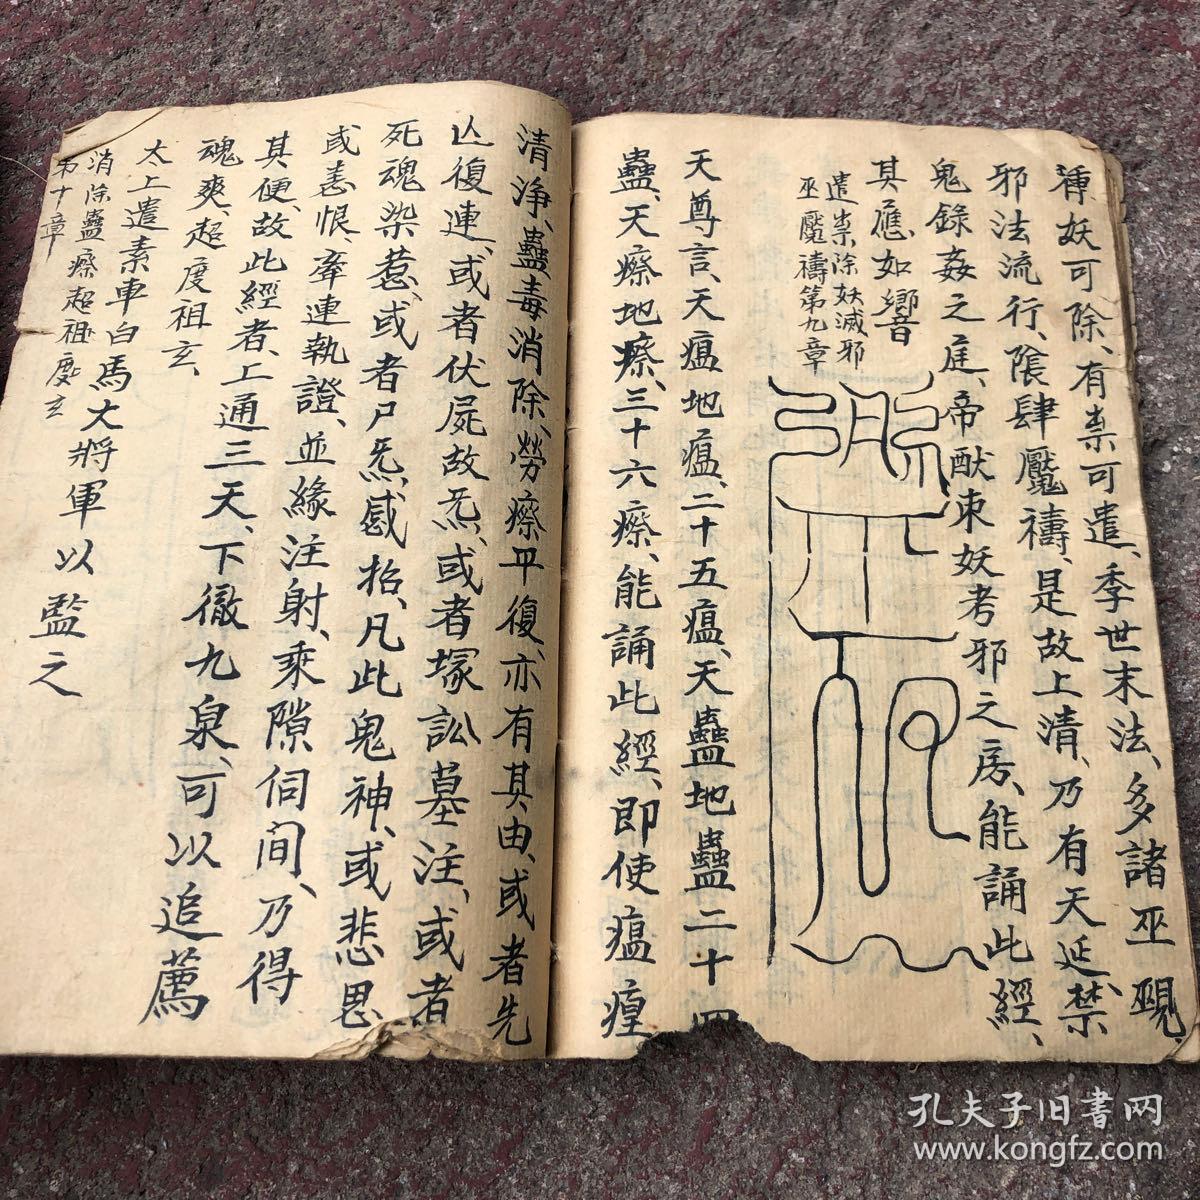 種妖可除、有祟可遣、季世末法、多諸巫覡、
邪法流行、陰肆魘禱、是故上清、乃有天延、禁
鬼錄姦之庭、帝猷束妖考邪之房、能誦此經、
其應如響
遣祟除妖滅邪
巫魘禱第九章
天尊言、天瘟地瘟、二十五瘟、天蠱地蠱二十四
蠱、天瘵地瘵、三十六瘵、能誦此經、即使瘟㾮
清淨、蠱毒消除、勞瘵平復、亦有其由、或者先
亾復連、或者伏屍故炁、或者塚訟墓注、或者
死魂染惹、或者尸炁、感招、凡此鬼神、或悲思
或恚恨、牽連執證、並緣注射、乘隙伺間、乃得
其便、故此經者、上通三天、下徹九泉、可以追薦
魂爽、超度祖玄、
太上遣素車白馬大將軍以監之
消除蠱瘵超祖度玄
第十章
孔夫子旧书网
www.kongfz.com